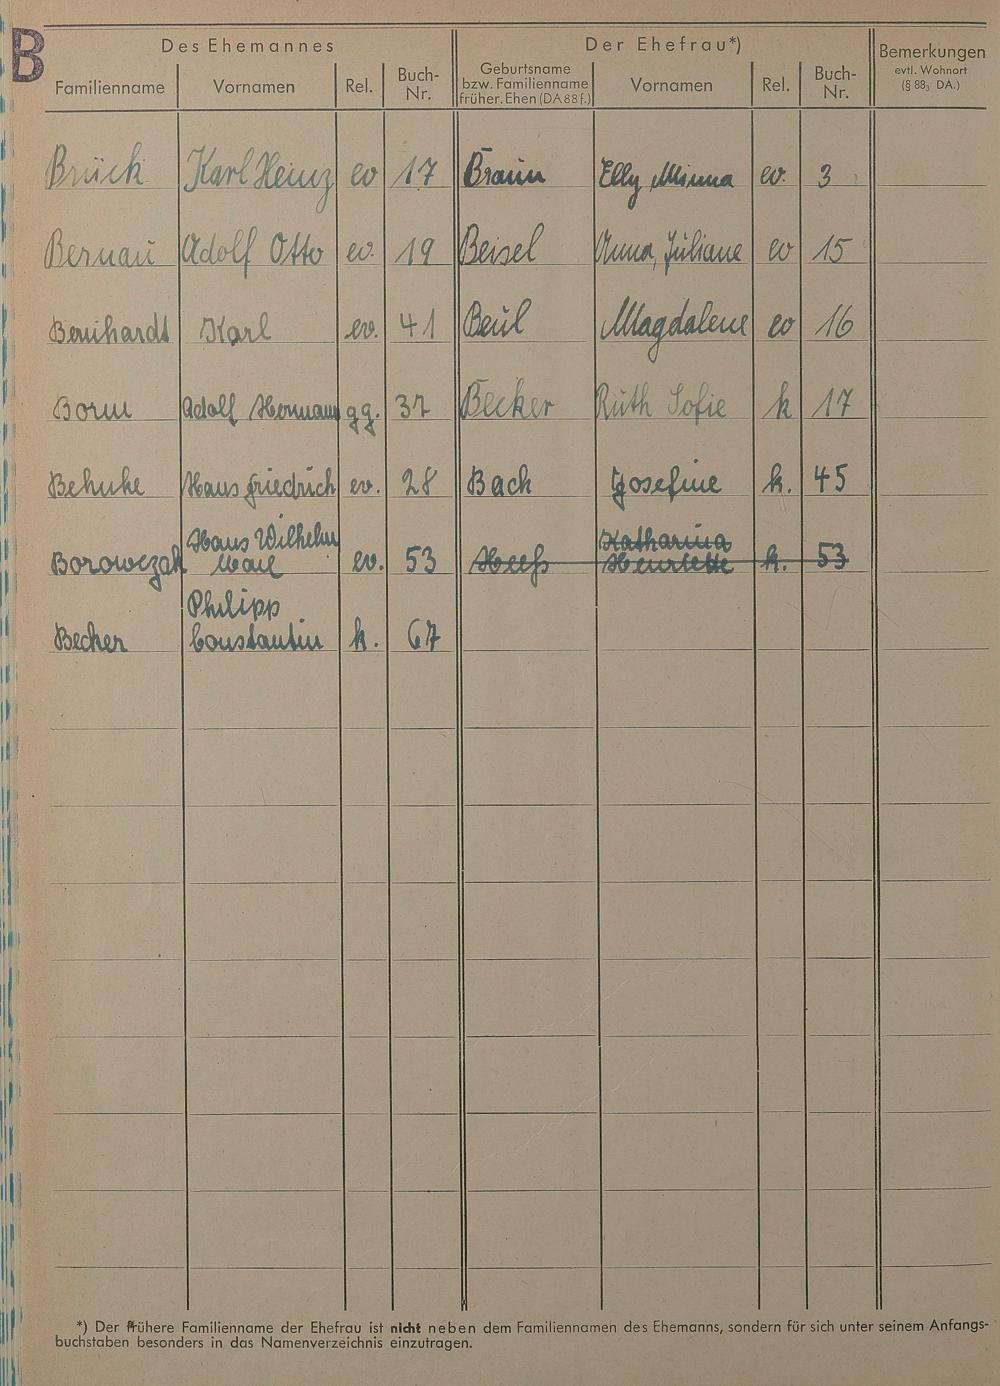 B
Des Ehemannes
Der Ehefrau*)
Bemerkungen
evtl. Wohnort
(§ 88₃ DA.)
Familienname
Vornamen
Rel.
Buch-
Nr.
Geburtsname
bzw. Familienname
früher. Ehen (DA 88 f.)
Vornamen
Rel.
Buch-
Nr.
Brück Karl Heinz ev 17 Braun Elly Minna ev. 3
Bernau Adolf Otto ev. 19 Beisel Anna, Juliane ev 15
Bernhardt Karl ev. 41 Beul Magdalene ev 16
Born Adolf Hermann gg. 37 Becker Ruth Sofie k 17
Behnke Hans Friedrich ev. 28 Bach Josefine k. 45
Hans Wilhelm Katharina
Borowczak ev. 53 Heefs Henriette k. 53
Philipp
Becker Constantin k. 67
*) Der frühere Familienname der Ehefrau ist nicht neben dem Familiennamen des Ehemanns, sondern für sich unter seinem Anfangs-
buchstaben besonders in das Namenverzeichnis einzutragen.